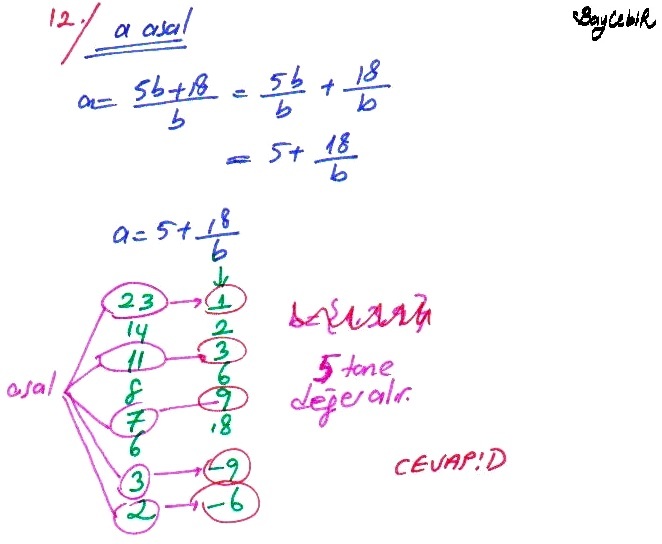 BayCebiR
12./ a asal
a = (5b+18)/b = 5b/b + 18/b
= 5 + 18/b
a = 5 + 18/b
↓
23 → 1
14 2
11 3
8 6
asal 7 9
6 18
3 → -9
2 → -6
5 tane
değer alır.
CEVAP:D